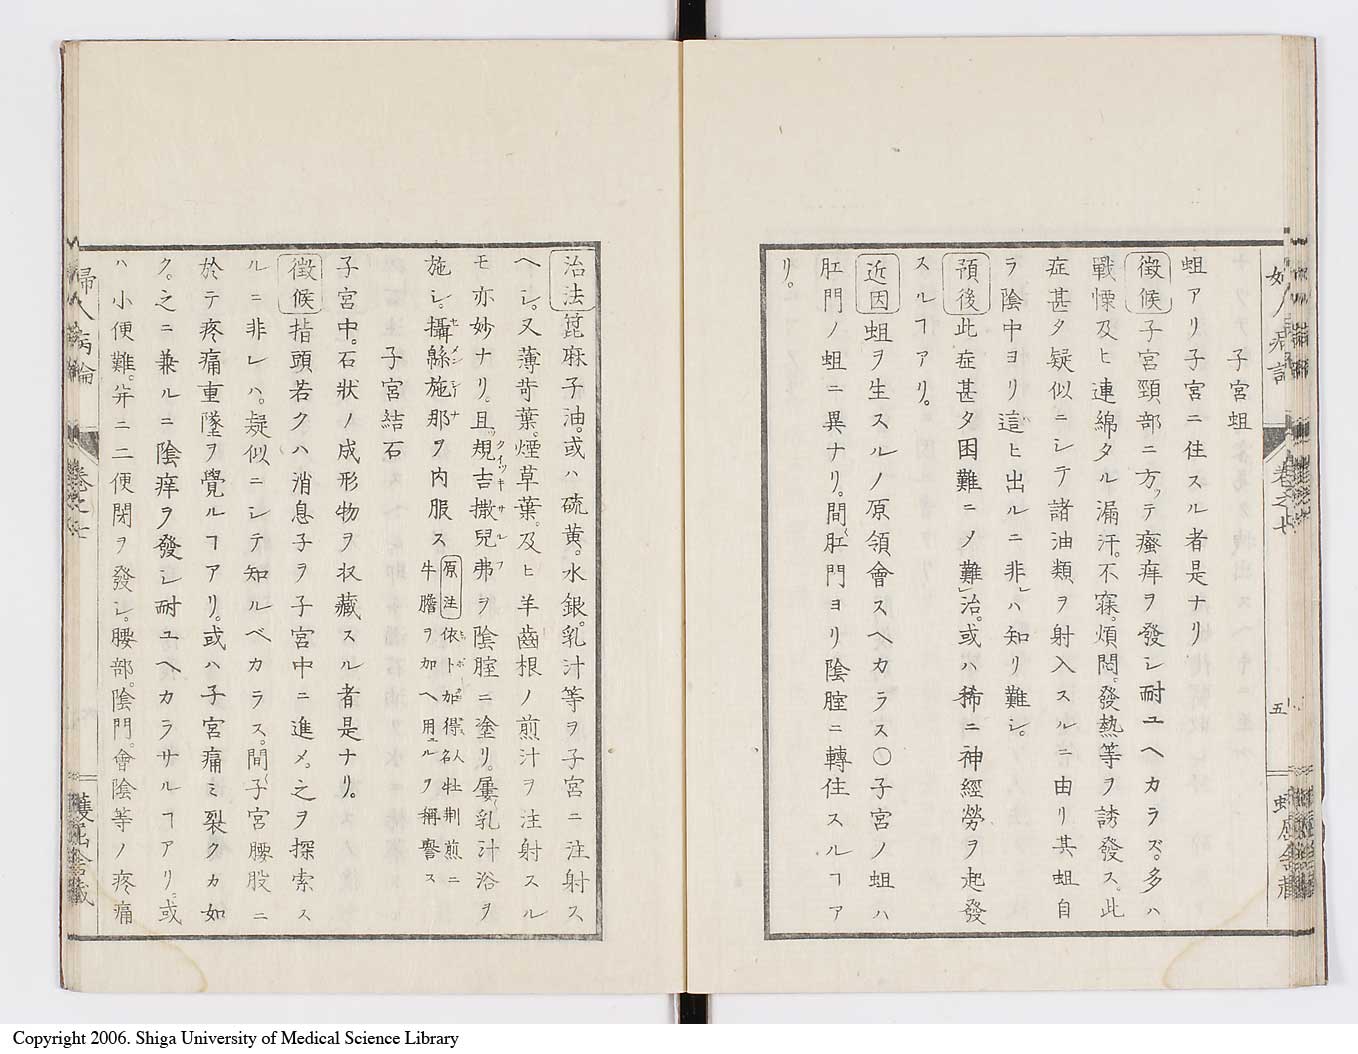 子宮蛆
蛆アリ子宮ニ住スル者是ナリ
徴候 子宮頸部ニ方ッテ瘙痒ヲ發シ耐ユヘカラズ。多ハ
戰慄及ヒ連綿タル漏汗。不寐。煩悶。發熱等ヲ誘發ス。此
症甚タ疑似ニシテ諸油類ヲ射入スルニ由リ其蛆自
ラ陰中ヨリ這ヒ出ルニ非レハ知リ難シ。
預後 此症甚タ困難ニノ難治。或ハ稀ニ神經勞ヲ起發
スルヿアリ。
近因 蛆ヲ生スルノ原領會スヘカラス〇子宮ノ蛆ハ
肛門ノ蛆ニ異ナリ。間〻肛門ヨリ陰腟ニ轉住スルヿア
リ。
五
治法 箆麻子油。或ハ硫黄。水銀。乳汁等ヲ子宮ニ注射ス
ヘシ。又薄苛葉。煙草葉。及ヒ羊齒根ノ煎汁ヲ注射スル
モ亦妙ナリ。且ッ規吉撒兒弗ヲ陰腟ニ塗リ。屢〻乳汁浴ヲ
施シ。攝緜施那ヲ内服ス 原注 依卜加得人名牡荆煎ニ牛膽ヲ加ヘ用ユルヿヲ稱譽ス
子宮結石
子宮中。石狀ノ成形物ヲ収藏スル者是ナリ。
徴候 指頭若クハ消息子ヲ子宮中ニ進メ。之ヲ探索ス
ルニ非レハ。疑似ニシテ知ルベカラス。間〻子宮腰股ニ
於テ疼痛重墜ヲ覺ルヿアリ。或ハ子宮痛ミ裂クカ如
ク。之ニ兼ルニ陰痒ヲ發シ耐ユヘカラサルヿアリ。或
ハ小便難。并ニ二便閉ヲ發シ。腰部。陰門。會陰等ノ疼痛
婦人病論
卷之七